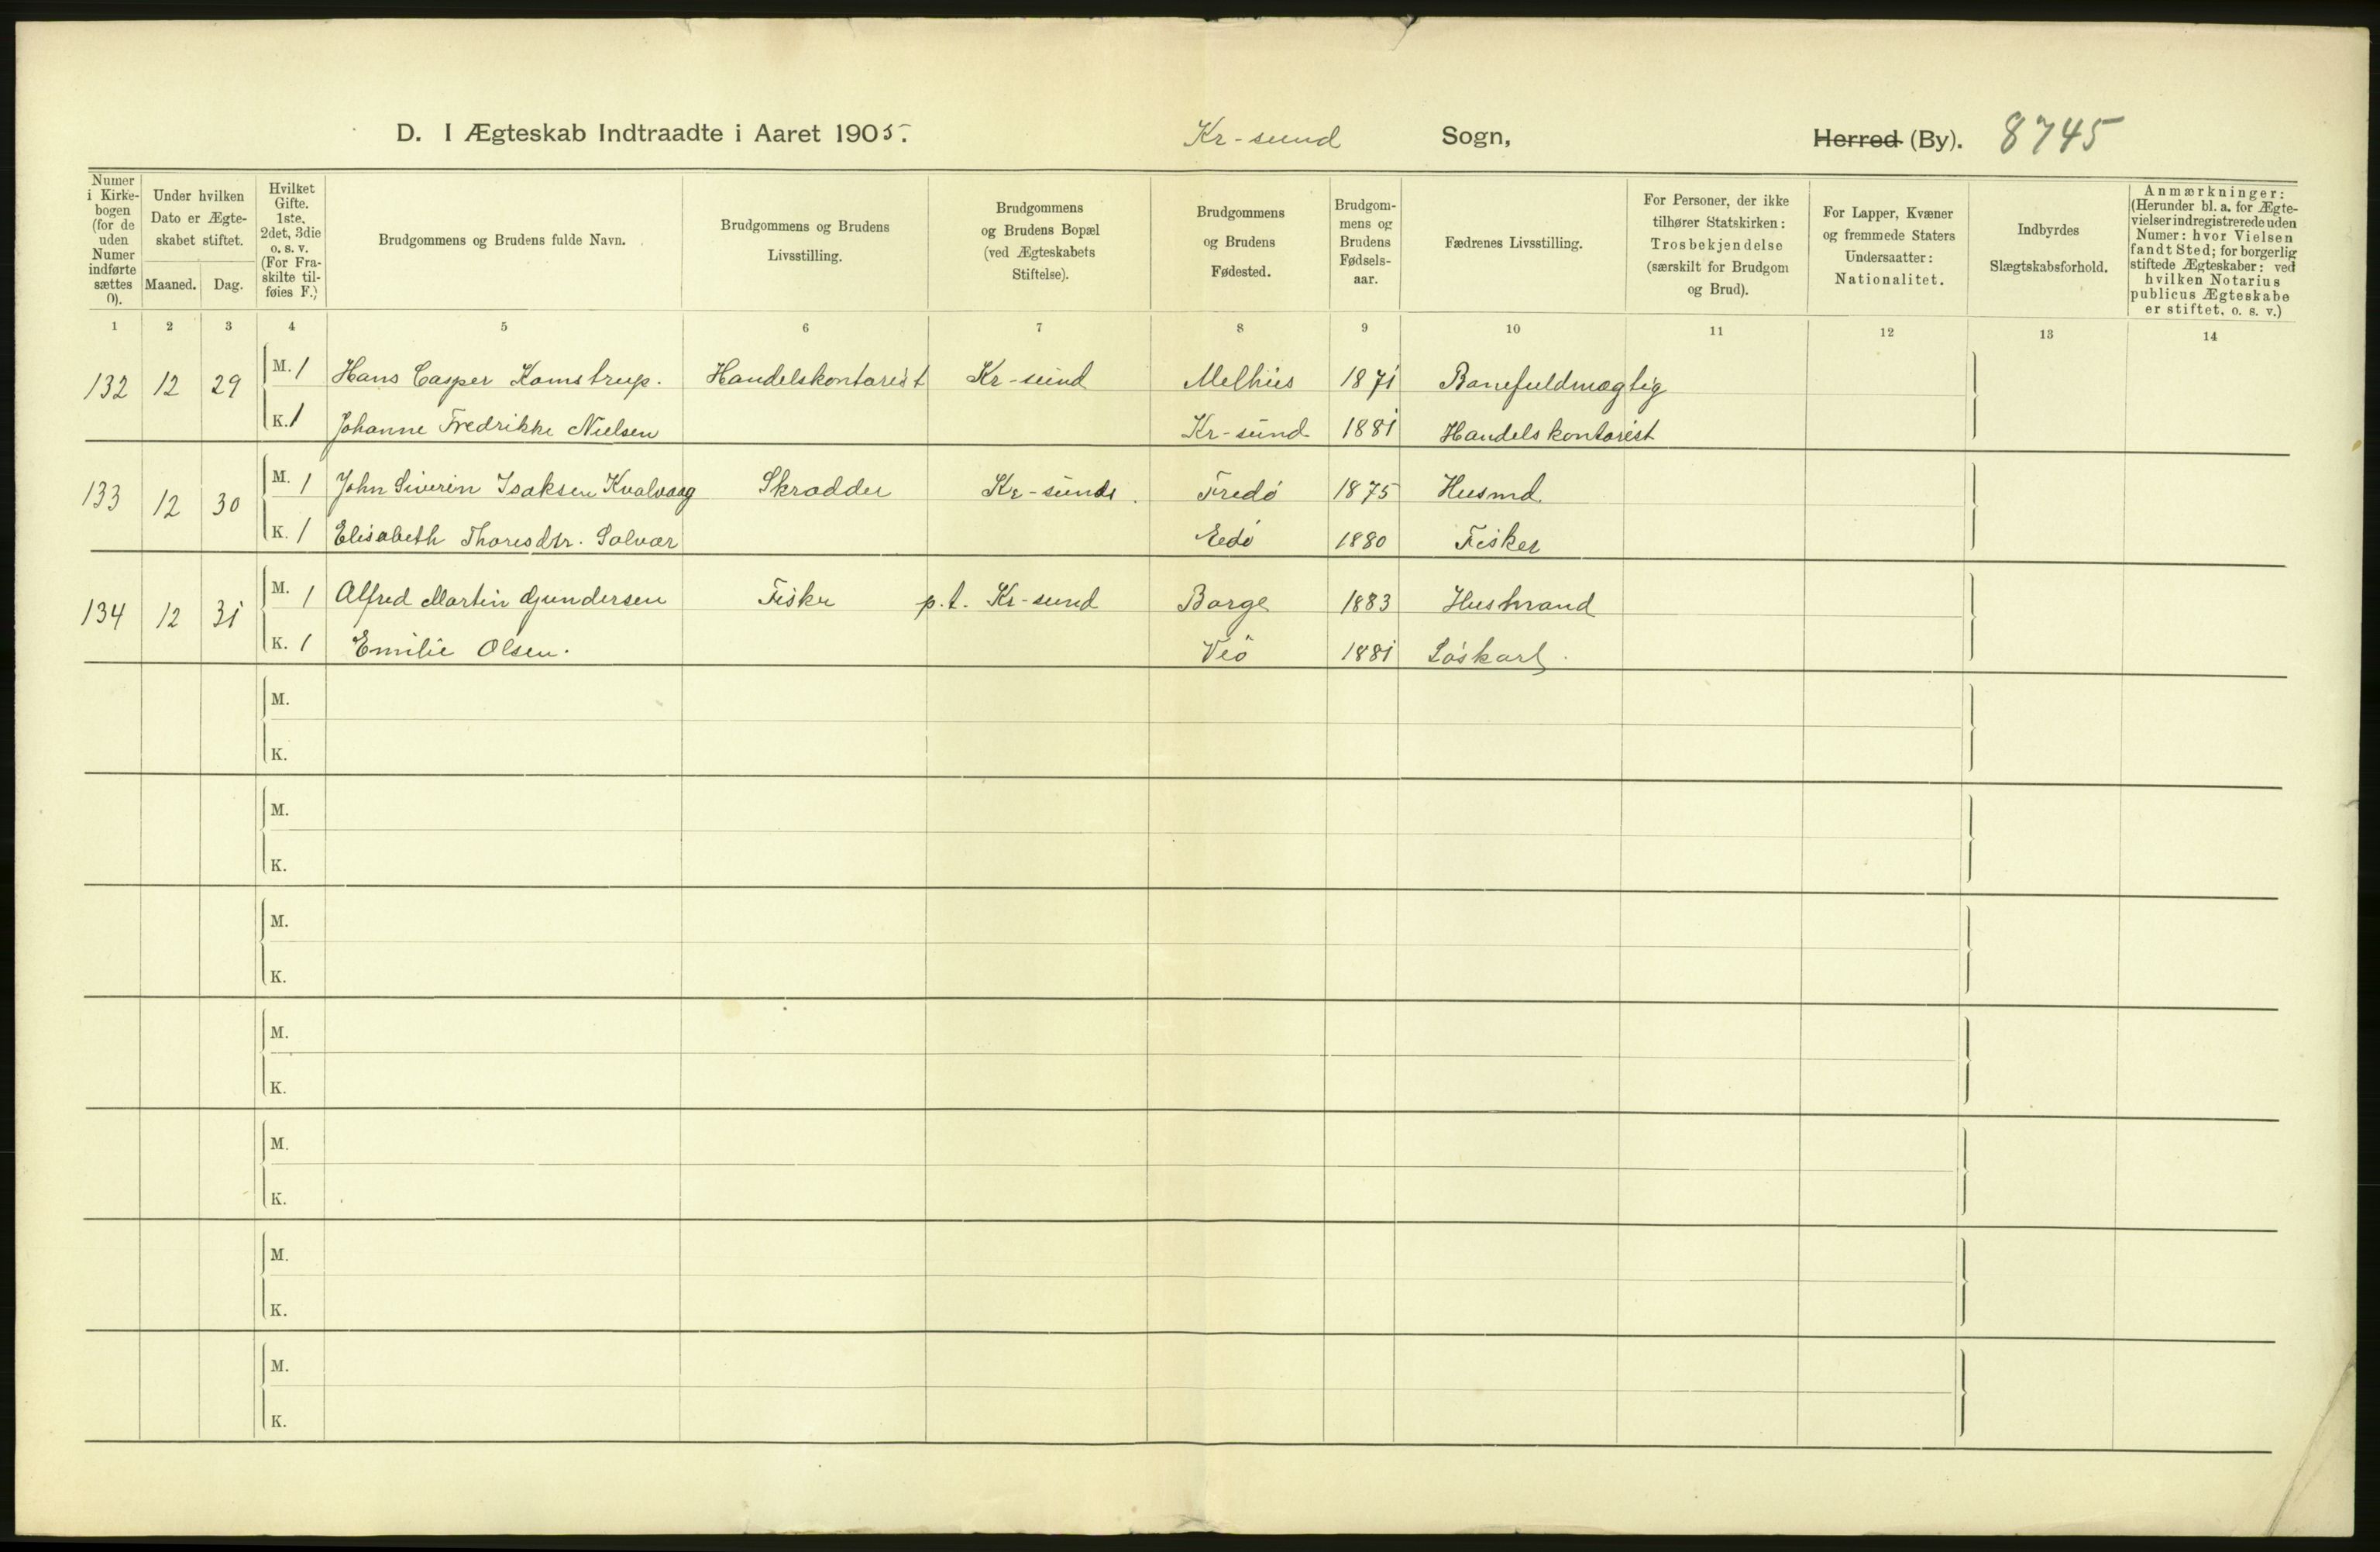 D. I Ægteskab Indtraadte i Aaret 1905. Kr-sund Sogn, Herred (By). 8745
Numer i Kirkebogen (for de uden Numer indførte sættes 0).
Under hvilken Dato er Ægteskabet stiftet.
Maaned. Dag.
Hvilket Gifte. 1ste, 2det, 3die o. s. v. (For Fraskilte tilføies F.)
Brudgommens og Brudens fulde Navn.
Brudgommens og Brudens Livsstilling.
Brudgommens og Brudens Bopæl (ved Ægteskabets Stiftelse).
Brudgommens og Brudens Fødested.
Brudgommens og Brudens Fødselsaar.
Fædrenes Livsstilling.
For Personer, der ikke tilhører Statskirken: Trosbekjendelse (særskilt for Brudgom og Brud).
For Lapper, Kvæner og fremmede Staters Undersaatter: Nationalitet.
Indbyrdes Slægtskabsforhold.
Anmærkninger: (Herunder bl. a. for Ægtevielser indregistrerede uden Numer: hvor Vielsen fandt Sted; for borgerlig stiftede Ægteskaber: ved hvilken Notarius publicus Ægteskabe er stiftet, o. s. v.)
1 2 3 4 5 6 7 8 9 10 11 12 13 14
132 12 29 M. 1 Hans Casper Kamstrup. Handelskontorist Kr-sund Melhus 1871 Banefuldmægtig
K. 1 Johanne Fredrikke Nielsen Kr-sund 1881 Handelskontorist
133 12 30 M. 1 John Siverin Isaksen Kvalvaag Skrædder Kr-sund Fredø 1875 Husmd.
K. 1 Elisabeth Thoresdtr. Solvær Edø 1880 Fisker
134 12 31 M. 1 Alfred Martin Gundersen Fisker p.t. Kr-sund Borge 1883 Husmand
K. 1 Emilie Olsen. Veø 1881 Løskarl.
M.
K.
M.
K.
M.
K.
M.
K.
M.
K.
M.
K.
M.
K.